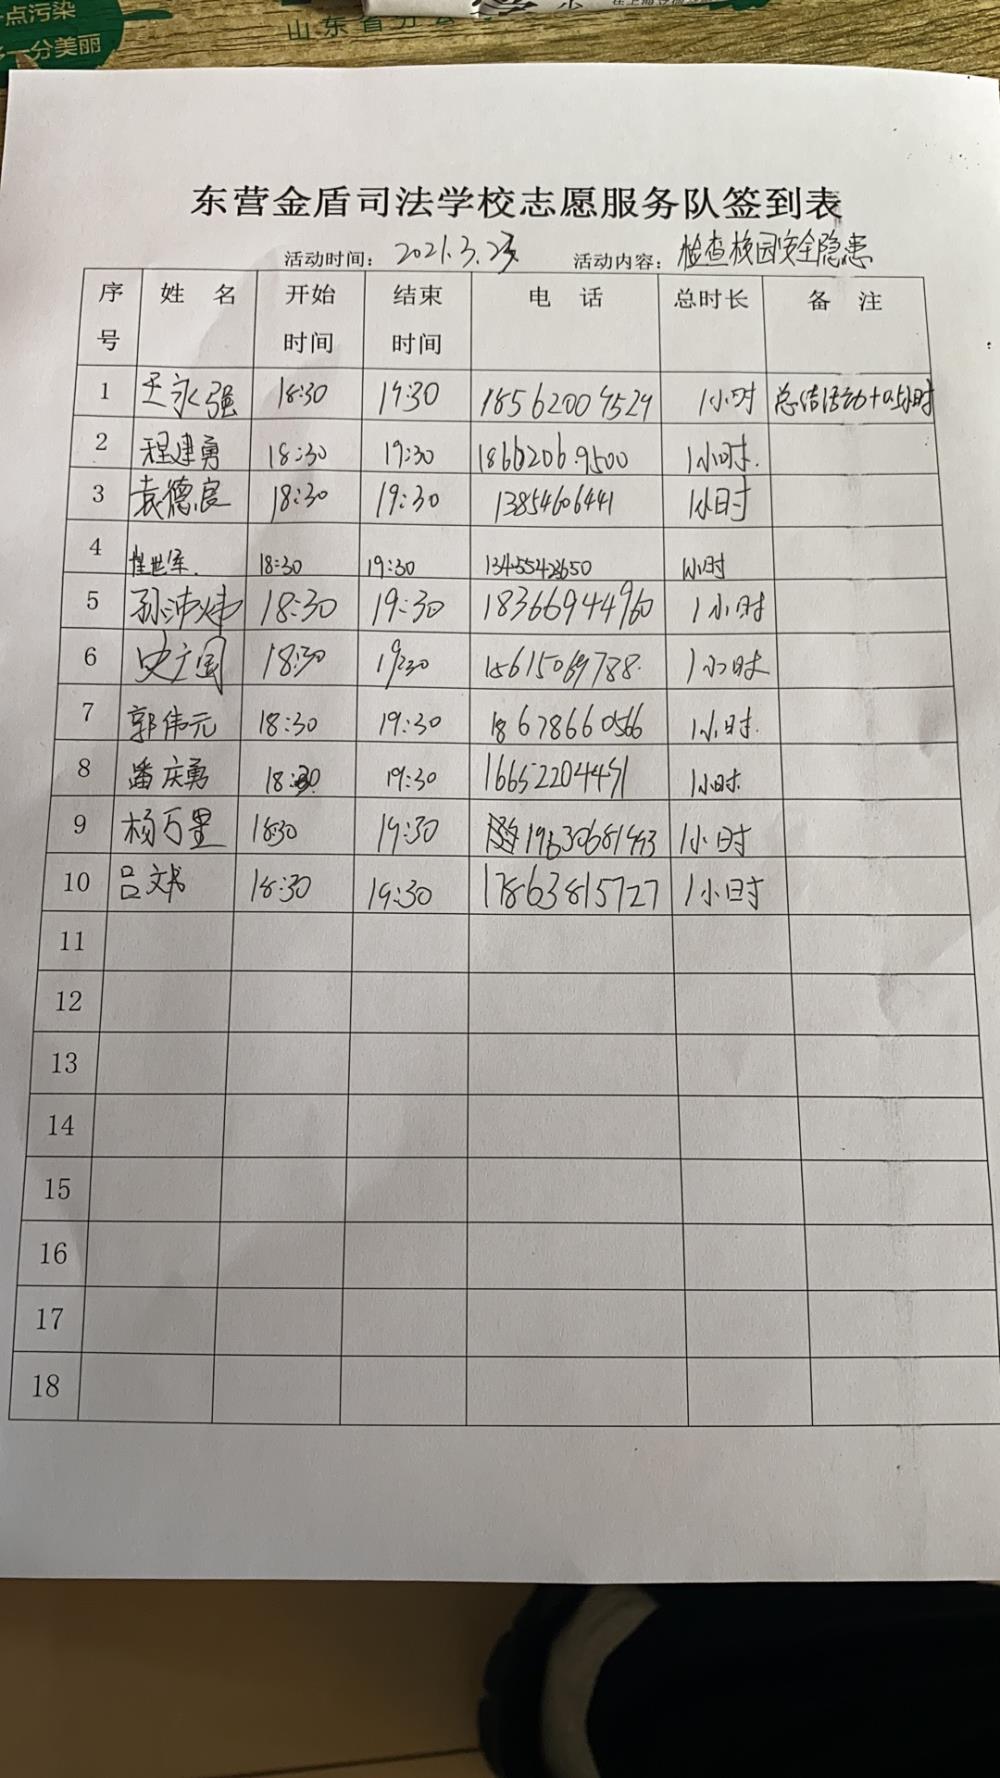 点污染
一分美丽
山东省分公
东营金盾司法学校志愿服务队签到表
活动时间: 2021.3.23 活动内容: 检查校园安全隐患
序号 姓 名 开始时间 结束时间 电 话 总时长 备 注
1 王永强 18:30 19:30 18562009529 1小时 总结活动+0.5小时
2 程建勇 18:30 19:30 18662069500 1小时.
3 袁德良 18:30 19:30 13854606441 1小时
4 世军. 18:30 19:30 13455423650 1小时
5 孙沛炜 18:30 19:30 18366944960 1小时
6 史广国 18:30 19:30 15615069788. 1小时
7 郭伟元 18:30 19:30 18678660566 1小时.
8 潘庆勇 18:30 19:30 16652204491 1小时.
9 杨万里 18:30 19:30 1小时
10 吕文书 18:30 19:30 17863815727 1小时
11
12
13
14
15
16
17
18